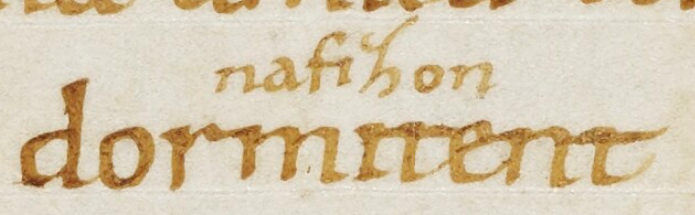 nafizhon
dormitent